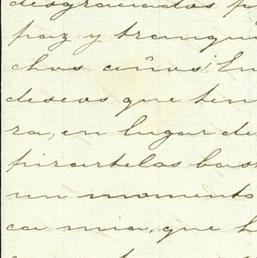 desgraciados p
paz y tranqui
chos años! En
deseos que ten
ra, en lugar de
pirartelas bas
un momento
ca mia, que h